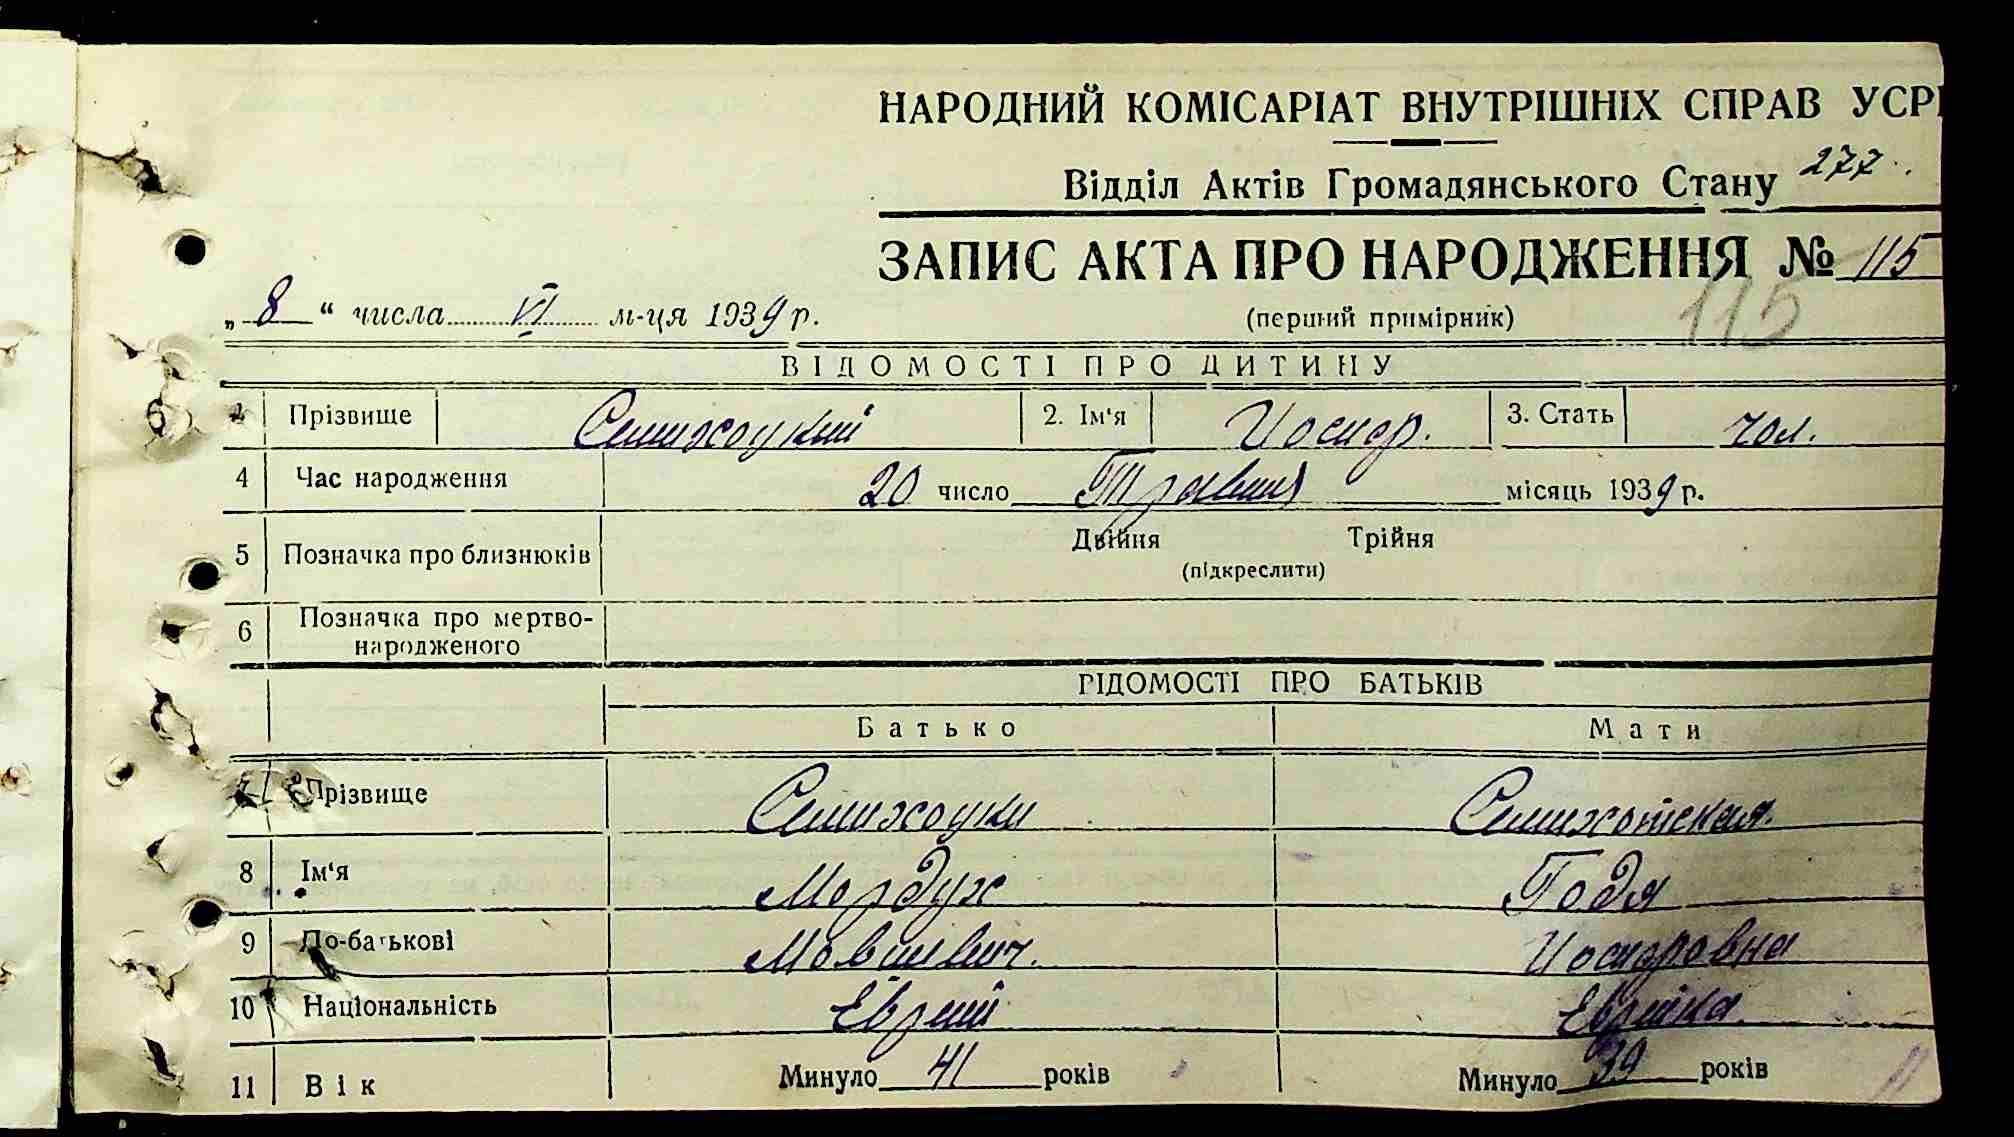 НАРОДНИЙ КОМІСАРІАТ ВНУТРІШНІХ СПРАВ УСРР
Відділ Актів Громадянського Стану 277.
ЗАПИС АКТА ПРО НАРОДЖЕННЯ № 115
„ 8 “ числа VI м-ця 1939 р.
(перший примірник) 115
ВІДОМОСТІ ПРО ДИТИНУ
1 Прізвище Семихоцкий 2. Ім'я Иосир. 3. Стать чол.
4 Час народження 20 число Травня місяць 1939 р.
5 Позначка про близнюків Двійня Трійня
(підкреслити)
6 Позначка про мертво-
народженого
ВІДОМОСТІ ПРО БАТЬКІВ
Батько Мати
7 Прізвище Семихоцки Семихотская.
8 Ім'я Мордух Годя
9 По-батькові Мовшевич. Иосировна
10 Національність Еврей Еврейка.
11 Вік Минуло 41 років Минуло 39 років